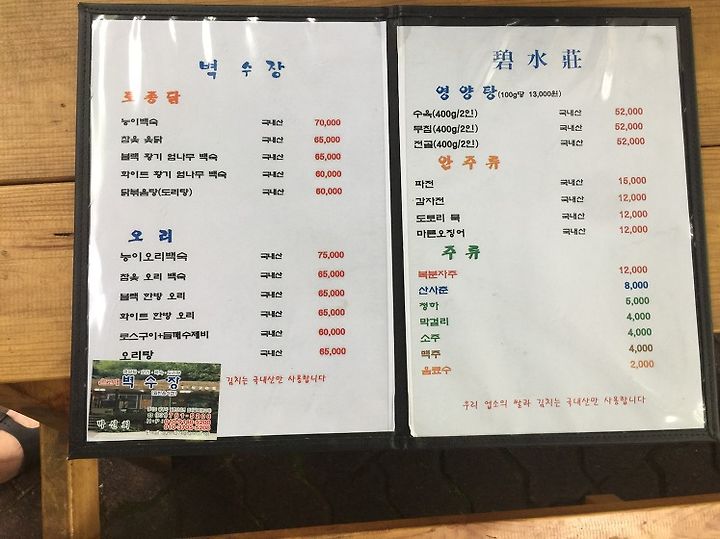 벽 수 장
토 종 닭
능이백숙 국내산 70,000
참옻 옻닭 국내산 65,000
블랙 황기 엄나무 백숙 국내산 65,000
화이트 황기 엄나무 백숙 국내산 60,000
닭볶음탕(도리탕) 국내산 60,000
오 리
능이오리백숙 국내산 75,000
참옻 오리 백숙 국내산 65,000
블랙 한방 오리 국내산 65,000
화이트 한방 오리 국내산 65,000
로스구이+들깨수제비 국내산 60,000
오리탕 국내산 65,000
김치는 국내산만 사용합니다
벽 수 장
碧 水 莊
영 양 탕(100g당 13,000원)
수육(400g/2인) 국내산 52,000
무침(400g/2인) 국내산 52,000
전골(400g/2인) 국내산 52,000
안 주 류
파전 국내산 15,000
감자전 국내산 12,000
도토리 묵 국내산 12,000
마른오징어 국내산 12,000
주 류
복분자주 12,000
산사춘 8,000
청하 5,000
막걸리 4,000
소주 4,000
맥주 4,000
음료수 2,000
우리 업소의 쌀과 김치는 국내산만 사용합니다